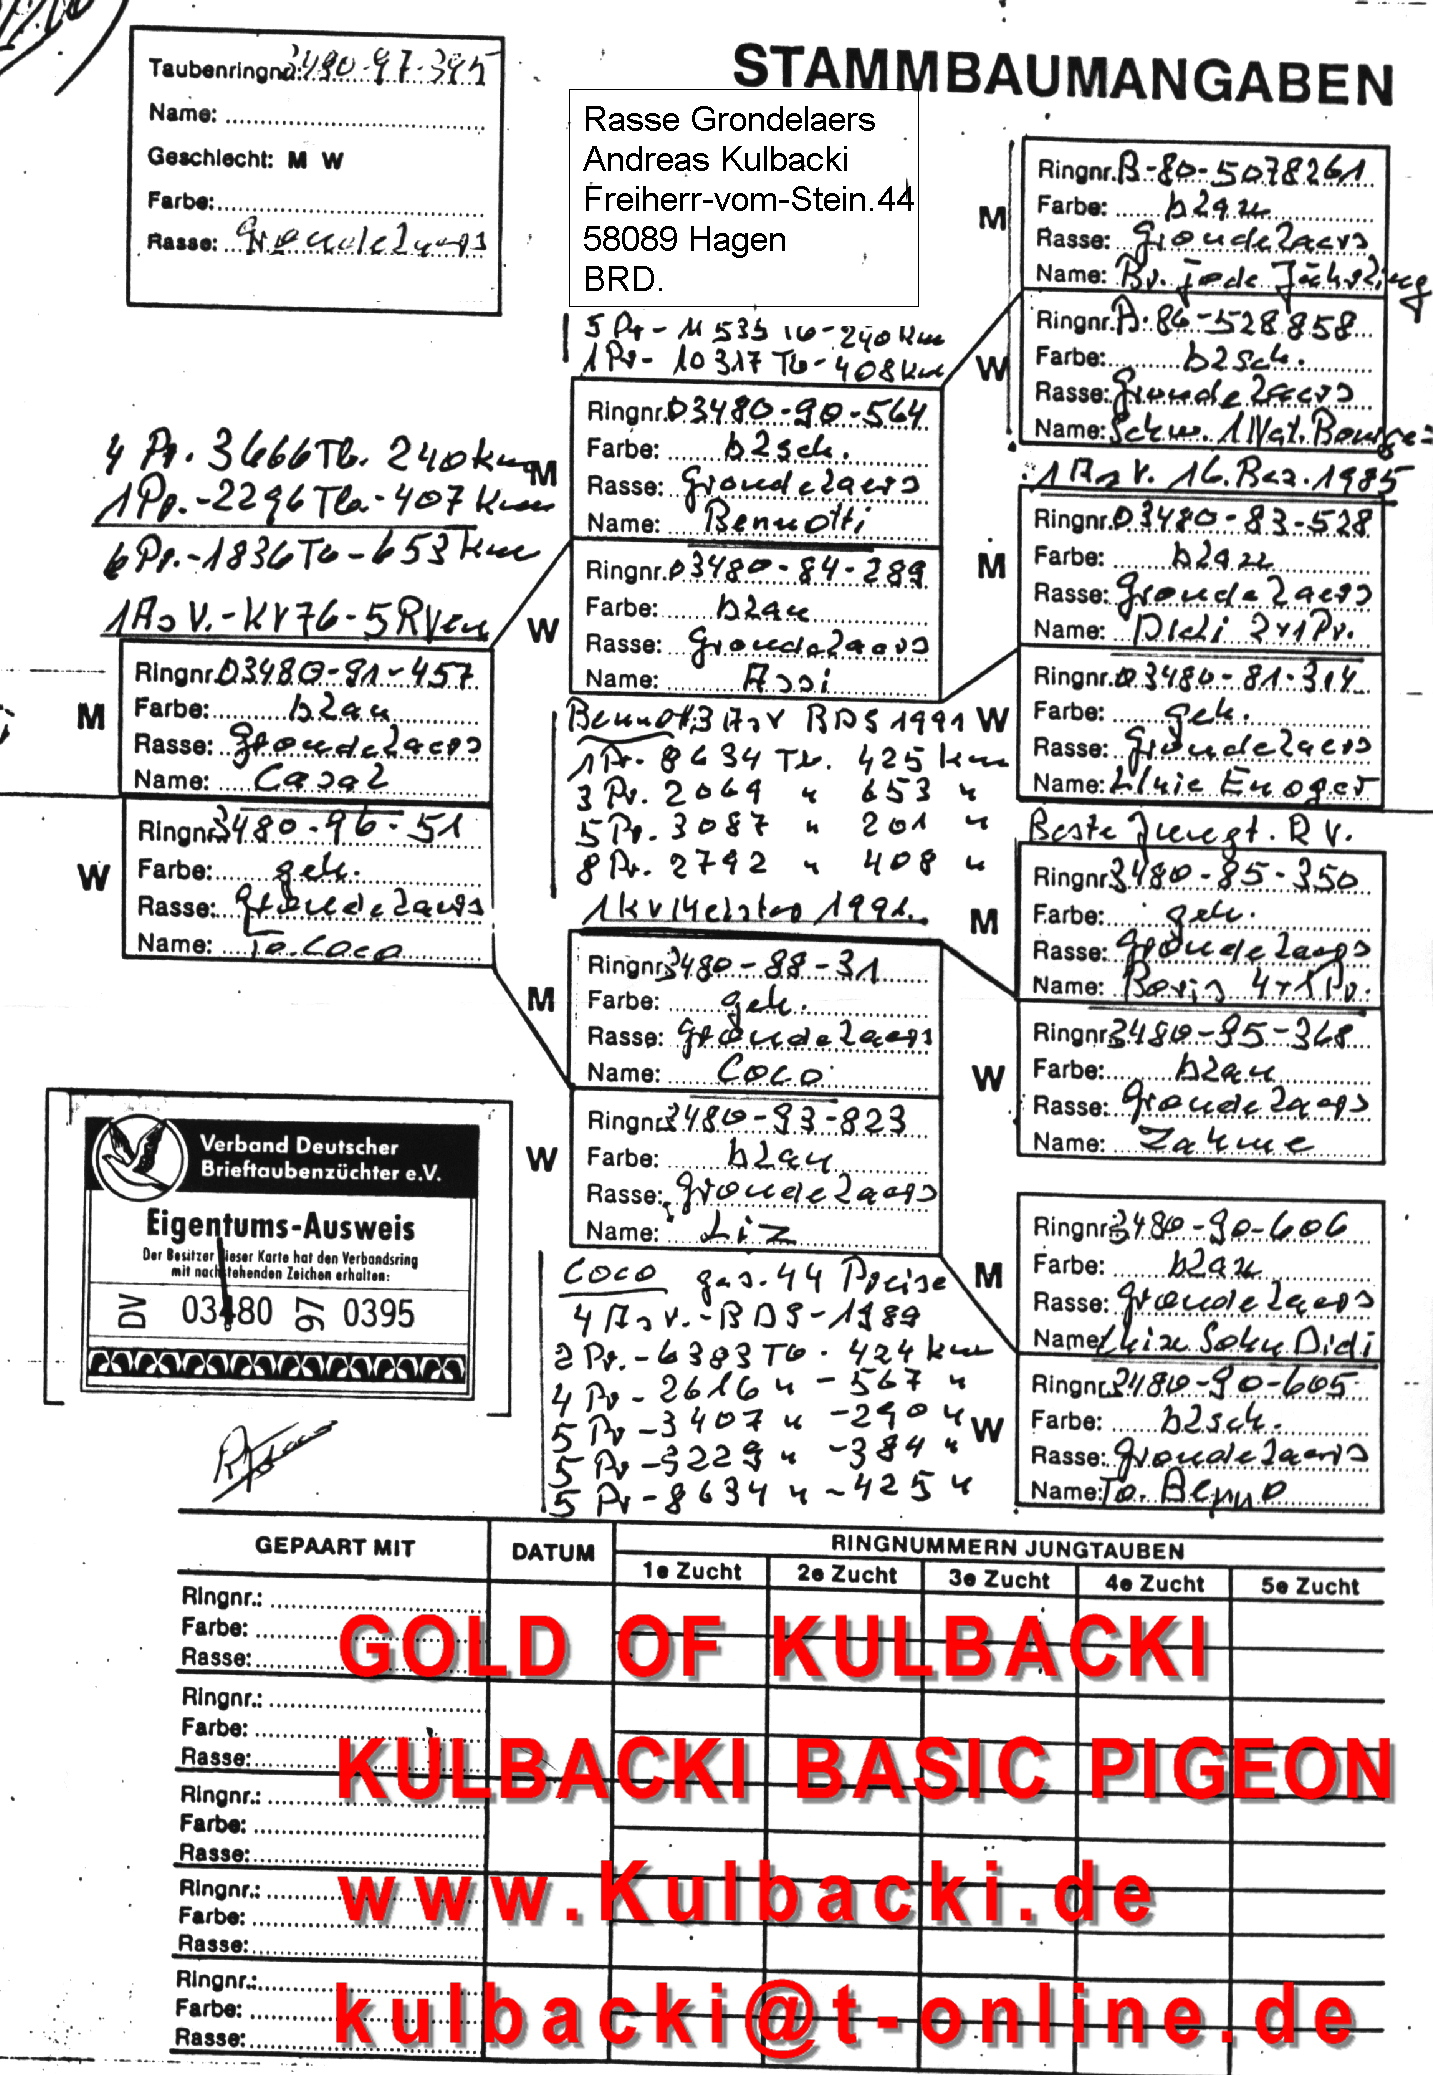 STAMMBAUMANGABEN
Taubenringnr. 3480-97-395
Name:
Geschlecht: M W
Farbe:
Rasse: Grondelaers
Rasse Grondelaers
Andreas Kulbacki
Freiherr-vom-Stein.44
58089 Hagen
BRD.
4 Pr. 3666 Tb. 240 km
1 Pr.-2296 Tb.-407 km
6 Pr.-1836 Tb-653 km
1 As V.-KV76-5 RVen
M
Ringnr. 03480-91-457
Farbe: blau
Rasse: Grondelaers
Name: Casal
W
Ringnr. 3480-96-51
Farbe: geh.
Rasse: Grondelaers
Name: To. Coco
5 Pr-11535 Tb-240 km
1 Pr-10317 Tb-408 km
M
Ringnr. 03480-90-564
Farbe: blsch.
Rasse: Grondelaers
Name: Bennotti
W
Ringnr. 03480-84-289
Farbe: blau
Rasse: Grondelaers
Name: Assi
Bennotti 3 As V BDS 1991
1 Pr. 8634 Tb. 425 km
3 Pr. 2069 " 653 "
5 Pr. 3087 " 201 "
8 Pr. 2792 " 408 "
1 KV Meister 1991.
M
Ringnr. 3480-88-31
Farbe: geh.
Rasse: Grondelaers
Name: Coco
W
Ringnr. 3480-93-823
Farbe: blau
Rasse: Grondelaers
Name: Liz
Coco ges. 44 Preise
4 As V.-BDS-1989
2 Pr.-6383 Tb. 424 km
4 Pr-2616 " -567 "
5 Pr-3407 " -290 "
5 Pr-3229 " -384 "
5 Pr-8634 " -425 "
M
Ringnr. B-80-5078261
Farbe: blau
Rasse: Grondelaers
Name: Br. jode Jährling
W
Ringnr. B-86-528858
Farbe: blsch.
Rasse: Grondelaers
Name: Schw. 1 Nat. Bourges
1 As V. 16. Bez. 1985
M
Ringnr. 03480-83-528
Farbe: blau
Rasse: Grondelaers
Name: Didi 2x1 Pr.
W
Ringnr. 03480-81-314
Farbe: geh.
Rasse: Grondelaers
Name:
Beste Jungt. RV.
M
Ringnr. 3480-85-350
Farbe: geh.
Rasse: Grondelaers
Name: Boris 4x1 Pr.
W
Ringnr. 3480-95-368
Farbe: blau
Rasse: Grondelaers
Name: Zahme
M
Ringnr. 3480-90-606
Farbe: blau
Rasse: Grondelaers
Name: Sohn Didi
W
Ringnr. 3480-90-605
Farbe: blsch.
Rasse: Grondelaers
Name: To. Benno
Verband Deutscher
Brieftaubenzüchter e.V.
Eigentums-Ausweis
Der Besitzer dieser Karte hat den Verbandsring
mit nachstehenden Zeichen erhalten:
DV 03480 97 0395
GEPAART MIT DATUM RINGNUMMERN JUNGTAUBEN
1e Zucht 2e Zucht 3e Zucht 4e Zucht 5e Zucht
Ringnr.:
Farbe:
Rasse:
GOLD OF KULBACKI
Ringnr.:
Farbe:
Rasse:
KULBACKI BASIC PIGEON
Ringnr.:
Farbe:
Rasse:
Ringnr.:
www.Kulbacki.de
Farbe:
Rasse:
Ringnr.:
Farbe:
kulbacki@t-online.de
Rasse: